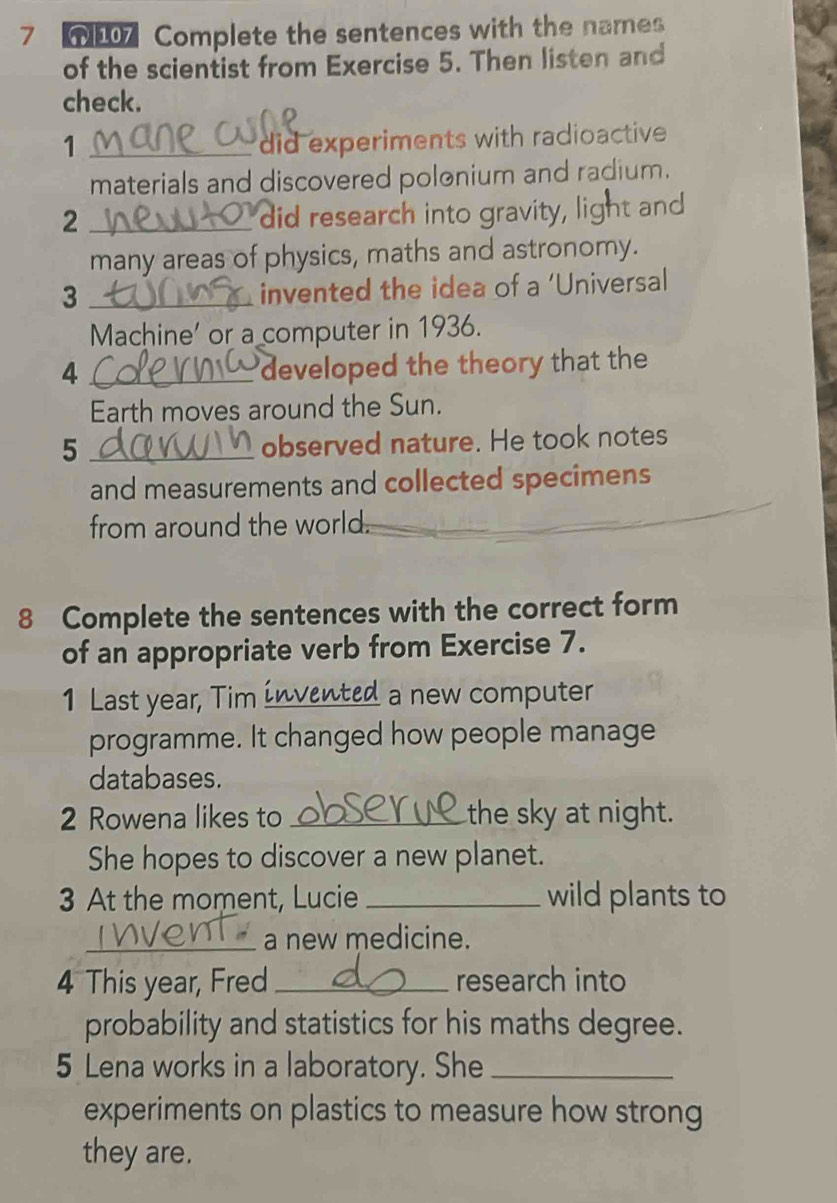 7 107 Complete the sentences with the names
of the scientist from Exercise 5. Then listen and
check.
1 marie curie did experiments with radioactive
materials and discovered polonium and radium.
2 newton did research into gravity, light and
many areas of physics, maths and astronomy.
3 turing invented the idea of a 'Universal
Machine' or a computer in 1936.
4 Copernicus developed the theory that the
Earth moves around the Sun.
5 darwin observed nature. He took notes
and measurements and collected specimens
from around the world.
8 Complete the sentences with the correct form
of an appropriate verb from Exercise 7.
1 Last year, Tim invented a new computer
programme. It changed how people manage
databases.
2 Rowena likes to observe the sky at night.
She hopes to discover a new planet.
3 At the moment, Lucie ____________ wild plants to
invent a new medicine.
4 This year, Fred do research into
probability and statistics for his maths degree.
5 Lena works in a laboratory. She ____________
experiments on plastics to measure how strong
they are.